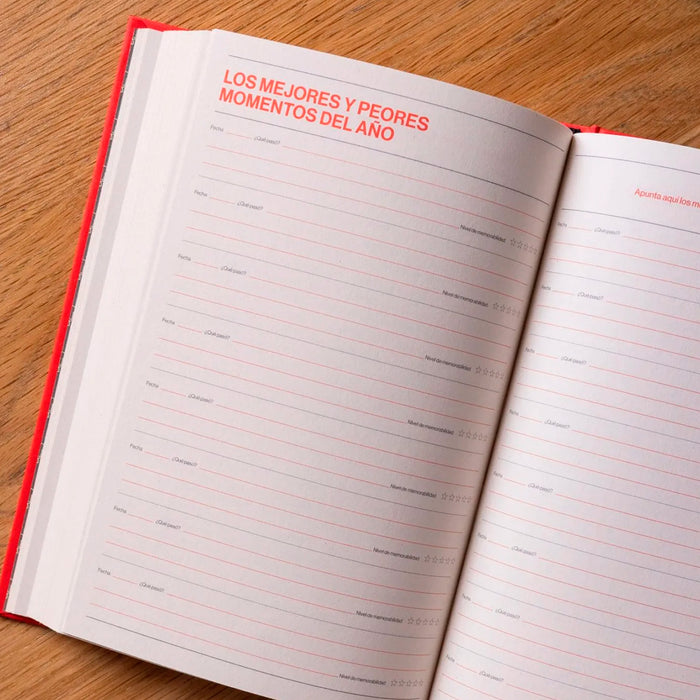 LOS MEJORES Y PEORES
MOMENTOS DEL AÑO
Fecha ¿Qué pasó?
Nivel de memorabilidad
Fecha ¿Qué pasó?
Nivel de memorabilidad
Fecha ¿Qué pasó?
Nivel de memorabilidad
Fecha ¿Qué pasó?
Nivel de memorabilidad
Fecha ¿Qué pasó?
Nivel de memorabilidad
Fecha ¿Qué pasó?
Nivel de memorabilidad
Fecha ¿Qué pasó?
Nivel de memorabilidad
Fecha ¿Qué pasó?
Nivel de memorabilidad
Apunta aquí los
Fecha ¿Qué pasó?
Fecha ¿Qué pasó?
Fecha ¿Qué pasó?
Fecha ¿Qué pasó?
Fecha ¿Qué pasó?
Fecha ¿Qué pasó?
Fecha ¿Qué pasó?
Fecha ¿Qué pasó?